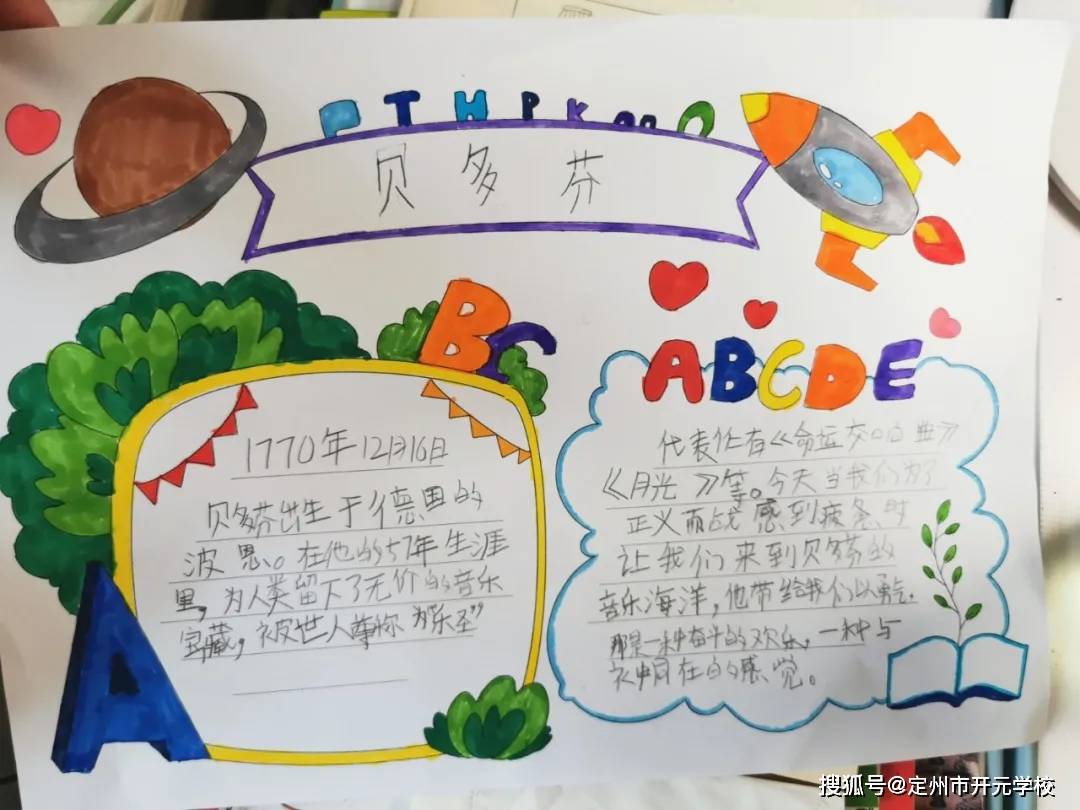 T H P K
贝多芬
BC
ABCDE
1770年12月16日
贝多芬出生于德国的
波恩。在他的57年生涯
里，为人类留下了无价的音乐
宝藏，被世人尊称为“乐圣”
A
代表作有《命运交响曲》
《月光》等。今天当我们为了
正义而战感到疲惫时
让我们来到贝多芬的
音乐海洋，他带给我们以勇气，
那是一种奋斗的欢乐，一种与
神同在的感觉。
搜狐号@定州市开元学校